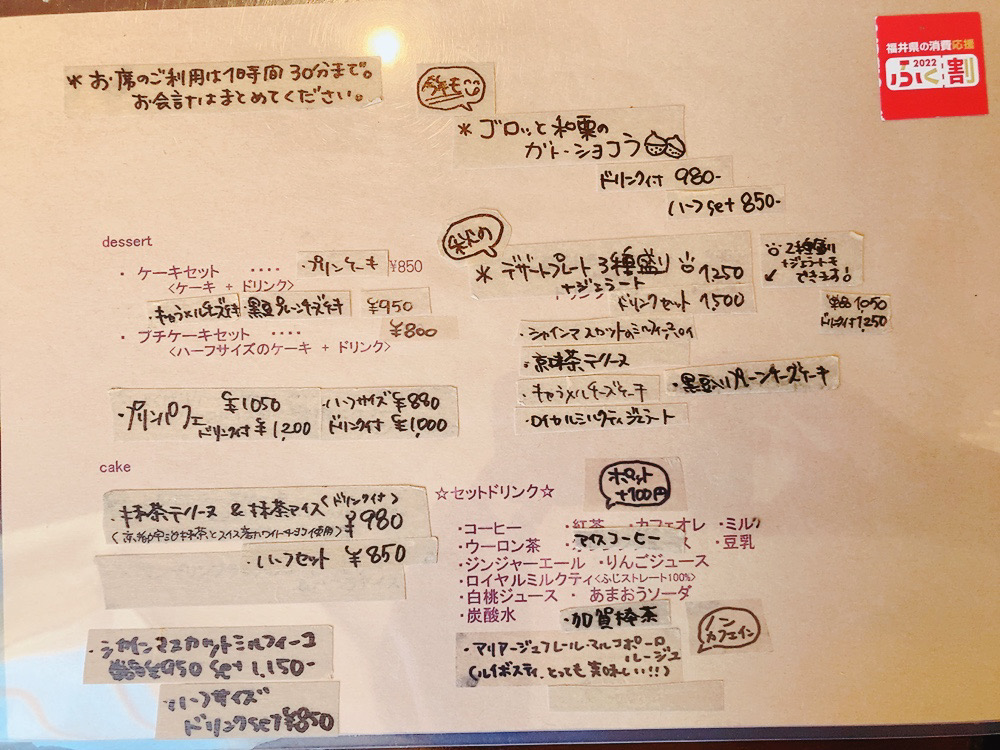 ＊お席のご利用は1時間30分まで。
お会計はまとめてください。
福井県の消費応援
2022
ふく割
今年も
＊ゴロッと和栗の
ガトーショコラ
ドリンク付 980-
ハーフset 850-
dessert
・ケーキセット ････ ・プリンケーキ ¥850
<ケーキ + ドリンク>
・キャラメルチーズケーキ ・黒豆プレーンチーズケーキ ¥950
・プチケーキセット ････ ¥800
<ハーフサイズのケーキ + ドリンク>
・プリンパフェ ¥1050
ドリンク付 ¥1,200
・ハーフサイズ ¥880
ドリンク付 ¥1,000
秋の
＊デザートプレート 3種盛り 1,250
+ジェラート
ドリンクセット 1,500
2種盛り
+ジェラートも
できます!
単品 1,050
ドリンク付 1,250
・シャインマスカットのミルフィーユパイ
・京抹茶テリーヌ
・キャラメルチーズケーキ
・黒豆入りプレーンチーズケーキ
・ロイヤルミルクティジェラート
cake
・抹茶テリーヌ & 抹茶アイス(ドリンク付)
¥980
・ハーフセット ¥850
・シャインマスカットミルフィーユ
単品¥950 set 1,150-
・ハーフサイズ
ドリンクset ¥850
☆セットドリンク☆
ポット
+100円
・コーヒー ・紅茶 ・カフェオレ ・ミルク
・ウーロン茶 アイスコーヒー ・豆乳
・ジンジャーエール ・りんごジュース
・ロイヤルミルクティ <ふじストレート100%>
・白桃ジュース ・ あまおうソーダ
・炭酸水 ・加賀棒茶
ノン
カフェイン
・マリアージュフレール・マルコポーロ
ルージュ
(ルイボスティ、とっても美味しい!!)